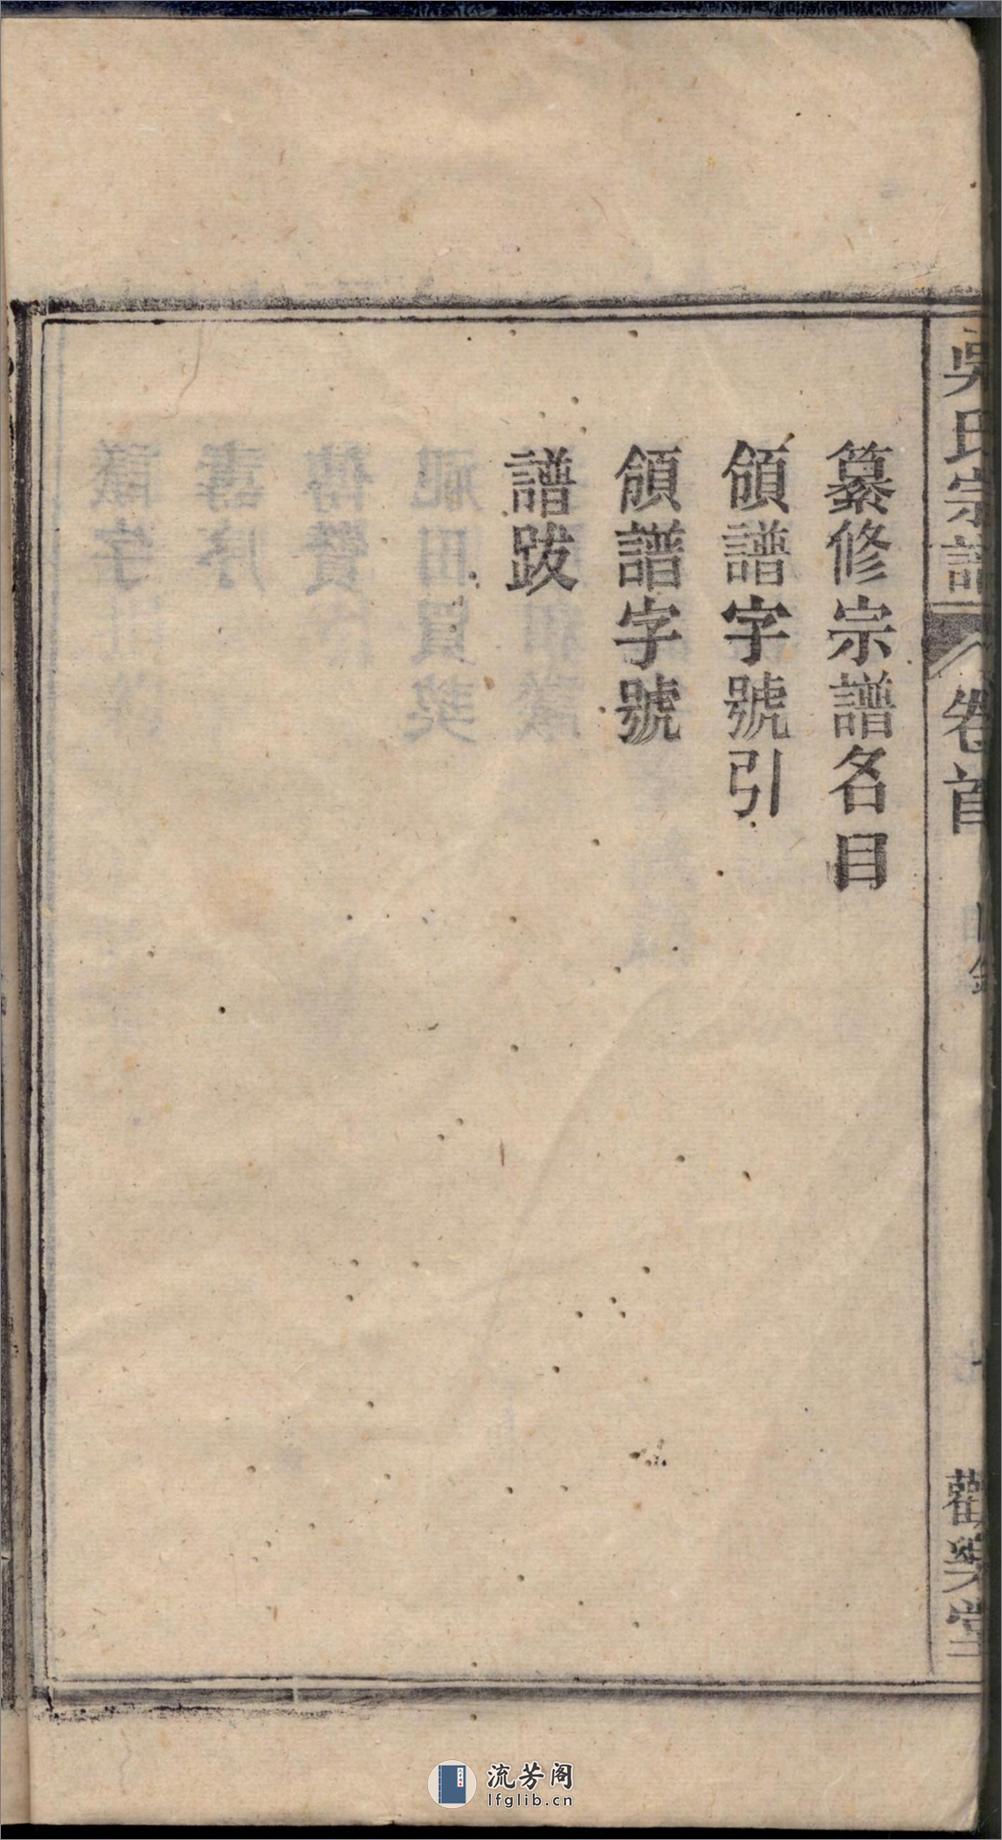 纂修宗譜名目
領譜字號引
領譜字號
譜跋
吳氏宗譜
卷首
目錄
堂
流芳阁
lfglib.cn